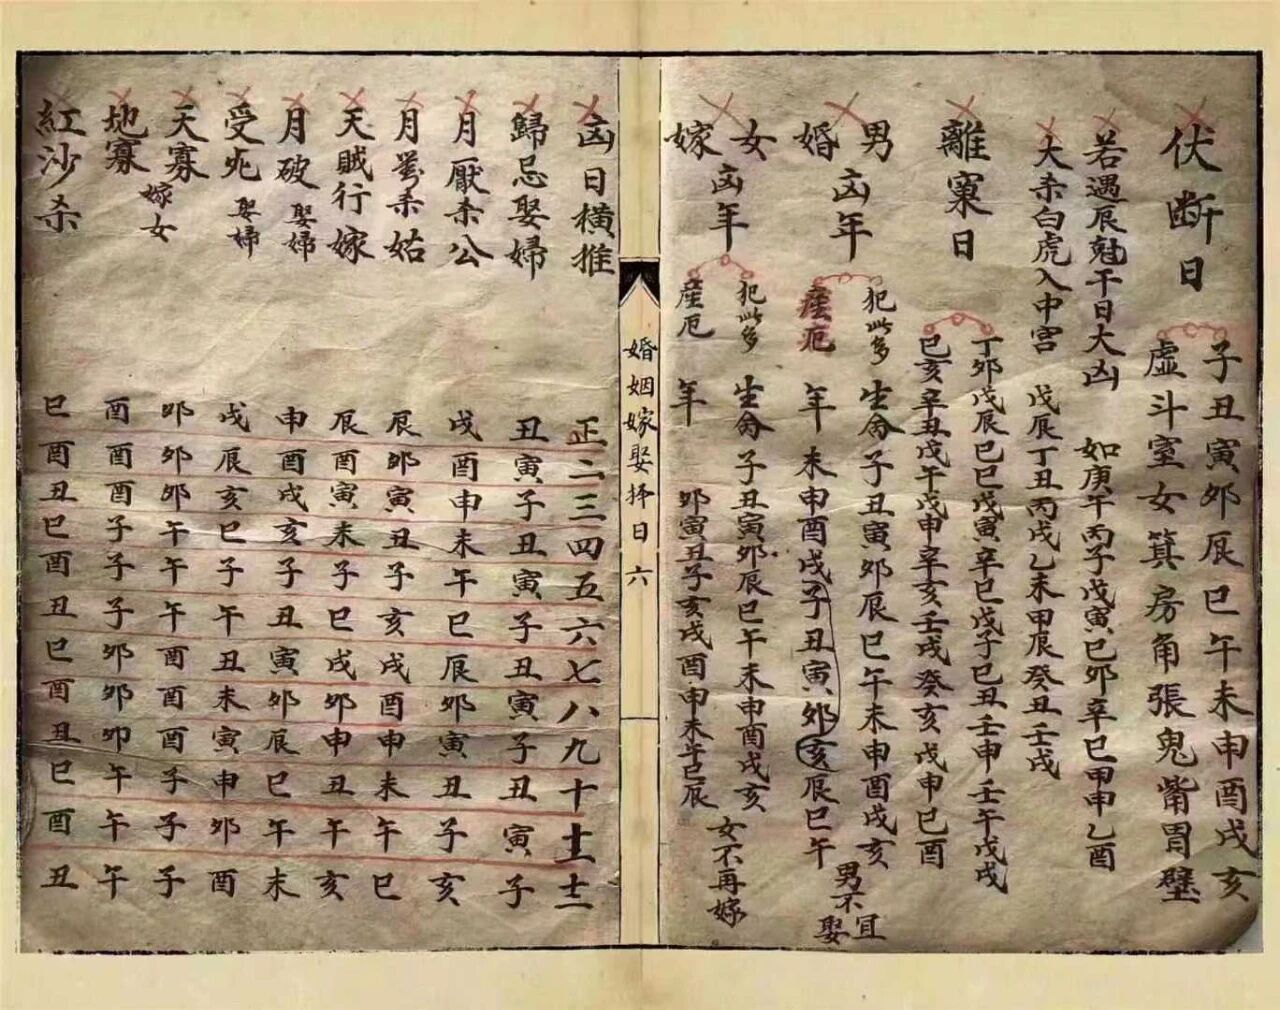 伏断日
子丑寅卯辰巳午未申酉戌亥
虛斗室女箕房角張鬼觜胃壁
若遇辰尅干日大凶 如庚午丙子戊寅巳卯辛巳甲申乙酉
大杀白虎入中宫 戊辰丁丑丙戌乙未甲辰癸丑壬戌
離窠日
丁卯戊辰巳巳戊寅辛巳戊子巳丑壬申壬午戊戌
巳亥辛丑戊午戊申辛亥壬戌癸亥戊申巳酉
男婚凶年
犯此多 生命子丑寅卯辰巳午未申酉戌亥
産厄 年 未申酉戌子丑寅卯亥辰巳午 男不宜娶
女嫁凶年
犯此多 生命子丑寅卯辰巳午未申酉戌亥
産厄 年 卯寅丑子亥戌酉申未午巳辰 女不再嫁
婚姻嫁娶择日 六
凶日横推 正二三四五六七八九十十一十二
歸忌娶婦 丑寅子丑寅子丑寅子丑寅子
月厭杀公 戌酉申未午巳辰卯寅丑子亥
月对杀姑 辰卯寅丑子亥戌酉申未午巳
天賊行嫁 辰酉寅未子巳戌卯申丑午亥
月破娶婦 申酉戌亥子丑寅卯辰巳午未
受死娶婦 戌辰亥巳子午丑未寅申卯酉
天寡 卯卯卯午午午酉酉酉子子子
嫁女
地寡 酉酉酉子子子卯卯卯午午午
紅沙杀 巳酉丑巳酉丑巳酉丑巳酉丑